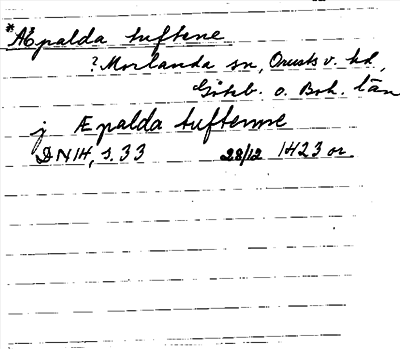 *Æpalda tuftene
?Morlanda sn, Orusts v. hd,
Göteb. o. Boh. län
j Æpalda tuftenne
DN14, s. 33 28/12 1423 or.